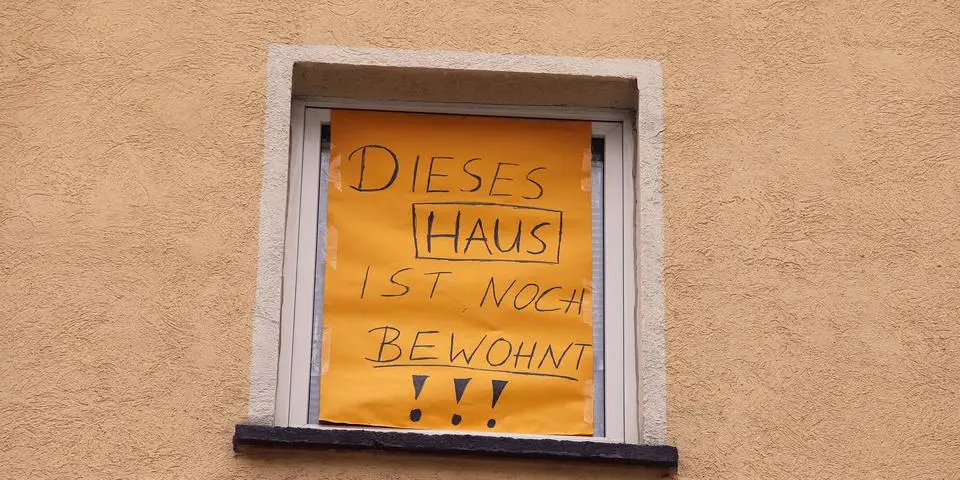 DIESES
HAUS
IST NOCH
BEWOHNT
!!!